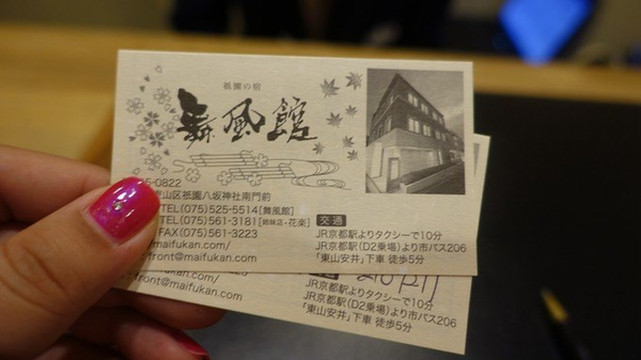 祇園の宿
舞風館
5-0822
山区祇園八坂神社南門前
TEL(075)525-5514[舞風館]
TEL(075)561-3181[姉妹店・花楽]
FAX(075)561-3223
maifukan.com/
front@maifukan.com/
交通
JR京都駅よりタクシーで10分
JR京都駅(D2乗場)より市バス206
「東山安井」下車 徒歩5分
maifukan.com/
JR京都駅よりタクシーで10分
JR京都駅(D2乗場)より市バス206
「東山安井」下車 徒歩5分